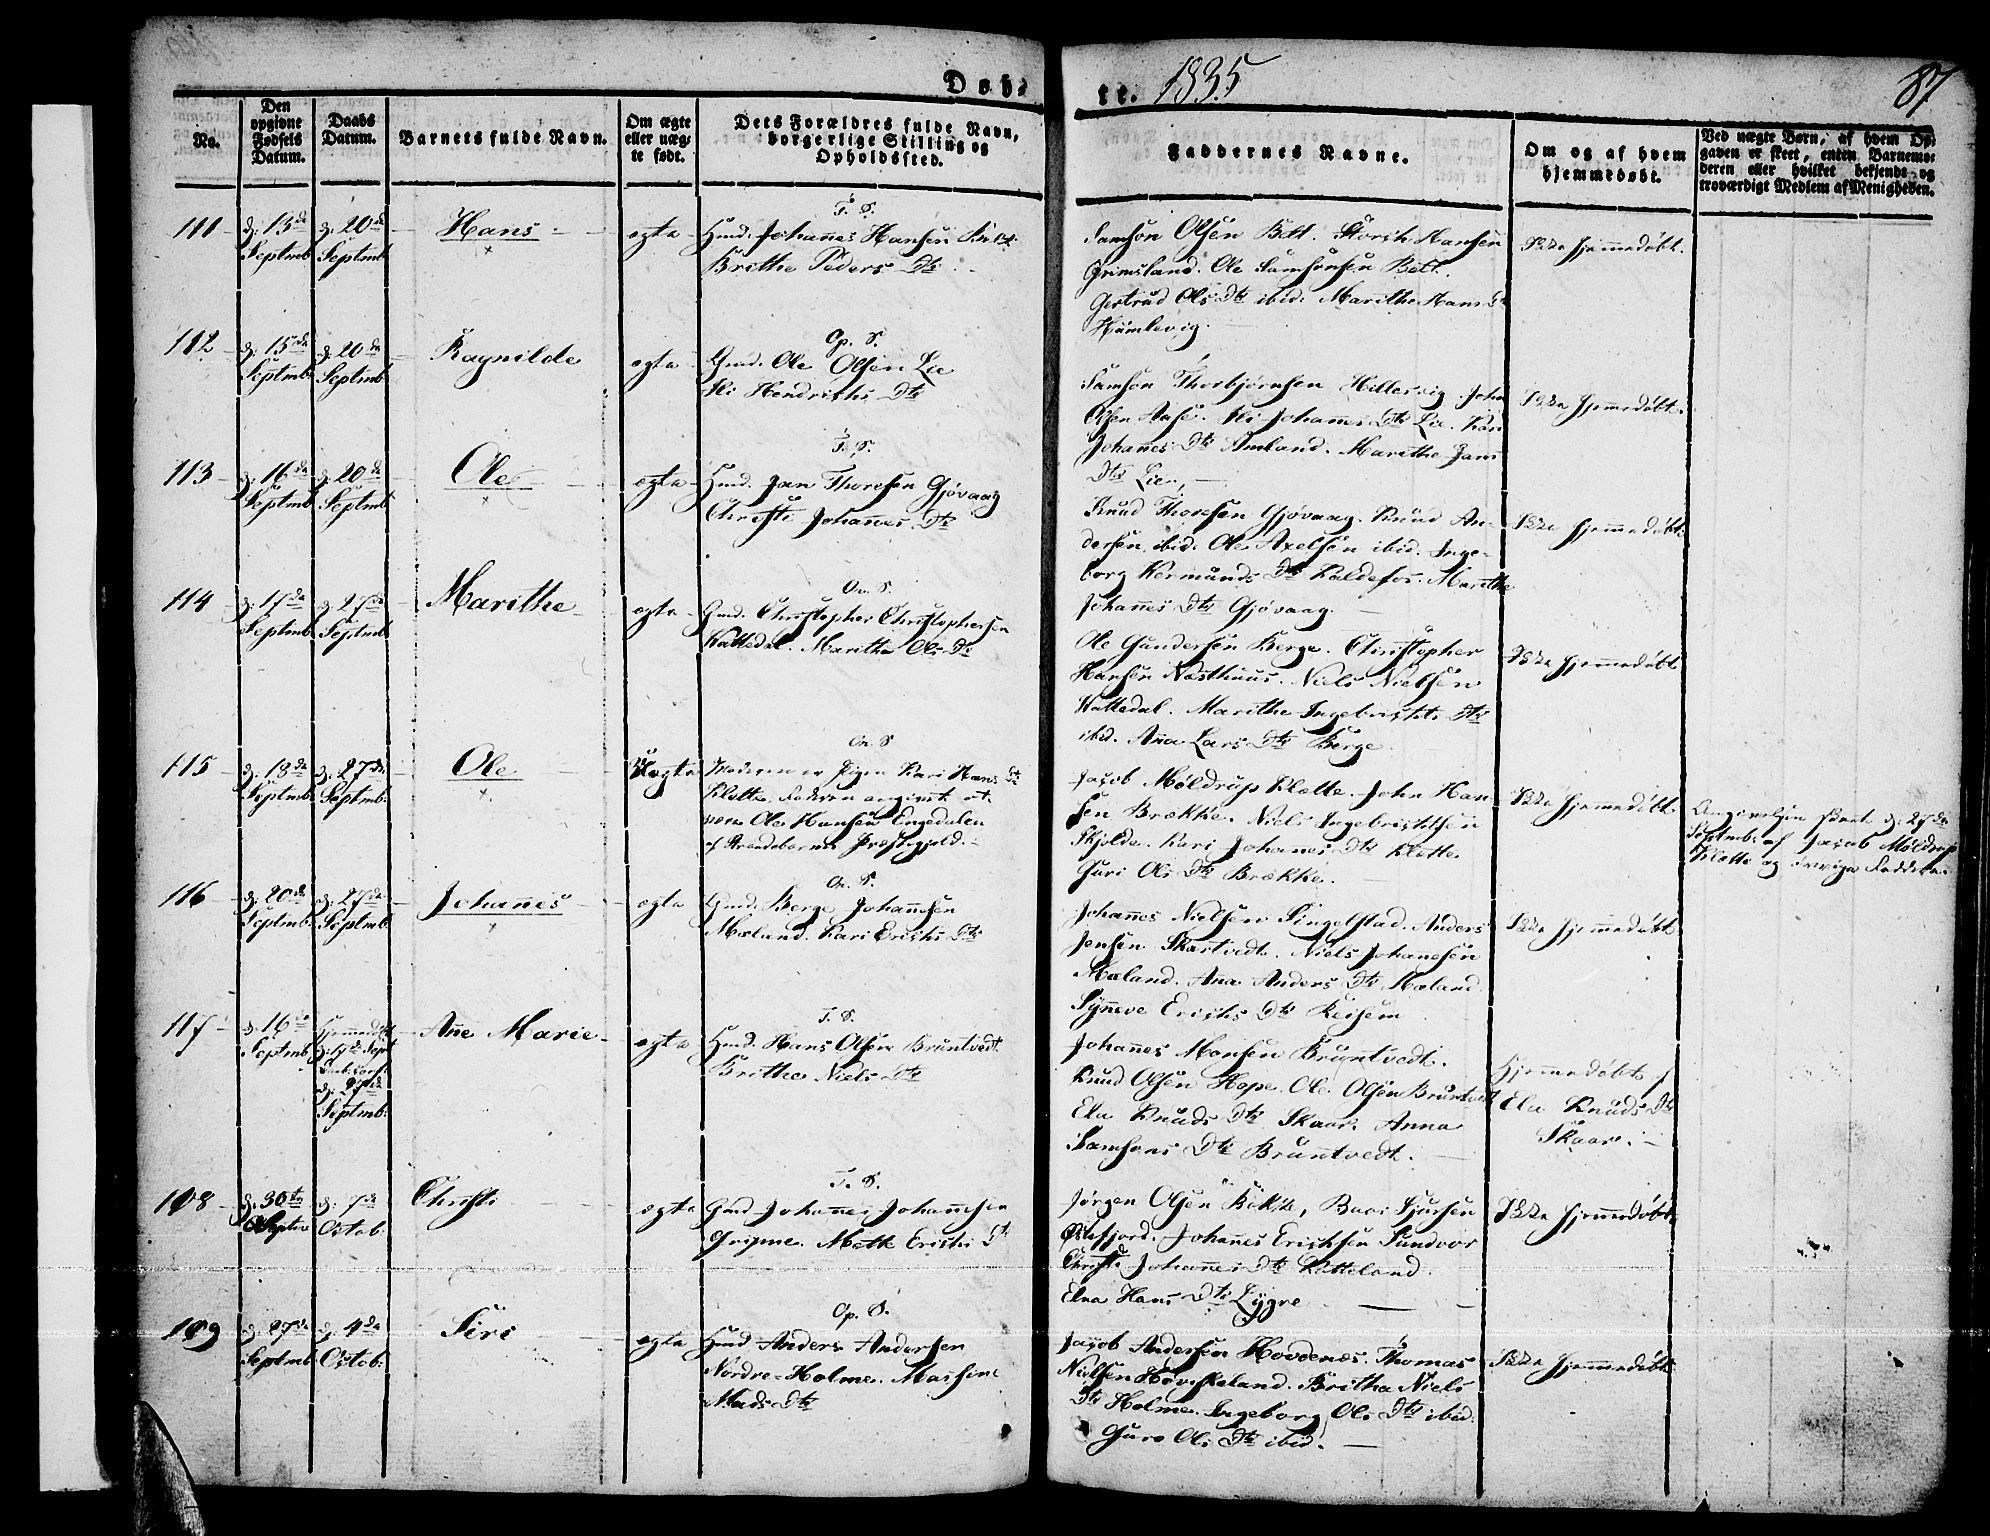 Døbte. 1835
87
No.
Den opgivne Fødsels Datum.
Daabs Datum.
Barnets fulde Navn.
Om ægte eller uægte født.
Dets Forældres fulde Navn, borgerlige Stilling og Opholdssted.
Faddernes Navne.
Om og af hvem hjemmedøbt.
Ved uægte Børn, af hvem Opgaven er skeet, enten Barnemoderen eller hvilket bekjendt og troværdigt Medlem af Menigheden.
111
d: 13de
Septmb
d: 20de
Septmb
Hans
ægte
Johannes Hansen
Brithe Peders Dtr
Samson Olsen Hansen
Grimsland. Ole Samsonsen
Gertrud Ols Dtr ibid: Marithe Hans Dtr
Humlevig.
Ikke hjemmedøbt.
112
d: 15de
Septmb
d: 20de
Septmb
Ragnilde
ægte
Op. S.
Gmd. Ole Olsen Lie
Hendrichs Dtr
Samson Thorbjørnsen Hillesvig. John
Olsen Aase. Johannes Dtr Lie. Kari
Johannes Dtr Amland. Marithe Jans
Dtr Lie.
Ikke hjemmedøbt.
113
d: 16de
Septmb
d: 20de
Septmb
Ole
ægte
Jan Thoresen Gjøvaag
Christi Johannes Dtr
Knud Thoresen Gjøvaag. Knud An-
dersen ibid. Ole Axelsen ibid. Inge-
borg Kormunds Dtr Kaldefos. Marithe
Johannes Dtr Gjøvaag.
Ikke hjemmedøbt.
114
d: 17de
Septmb
d: 27de
Septmb
Marithe
ægte
Gmd. Christopher Christophersen
Hattedal. Marithe Ols Dtr
Ole Gundersen Berge. Christopher
Hansen Næsthuus. Niels Nielsen
Hattedal. Marithe Ingebrigts Dtr
ibid. Anna Lars Dtr Berge.
Ikke hjemmedøbt
115
d: 18de
Septmb:
d: 27de
Septmb:
Ole
Uægte
Moderen er Pigen Kari Hans Dtr
Klette, Faderen angivet at
være Ole Hansen Engedalen
af Strandebarms Præstegjeld.
Jacob Møldrup Klette. John Han-
sen Brække. Niels Ingebrigtsen
Skjolde. Kari Johannes Dtr Klette.
Guri Ols Dtr Brække.
Ikke hjemmedøbt.
Angivelsen skeet d: 27de
Septmb: af Jacob Møldrup
Klette og øvrige Faddere.
116
d: 20de
Septmb:
d: 27de
Septmb:
Johannes
ægte
Gmd. Berge Johannesen
Mæland. Kari Erichs Dtr
Johannes Nielsen Singelstad. Anders
Jensen Skartvedt. Niels Johannesen
Mæland. Ana Anders Dtr Mæland.
Synneve Erichs Dtr Reisem
Ikke hjemmedøbt.
117
d: 16de
Septmb
Hjemmedøbt
d: 17de Sept
d: 27de
Septmb:
Ane Marie
ægte
T. S.
Hans Olsen Bruntvedt
Brithe Niels Dtr
Johannes Monsen Bruntvedt.
Knud Olsen Hope. Ole Olsen Bruntvedt
Ela Knuds Dtr Skaar. Anna
Samsons Dtr Bruntvedt.
Hjemmedøbt af
Ela Knuds Dtr
Skaar.
108
d: 30te
Septmr
d: 7de
Octob:
Christi
ægte
T. S.
Gmd Johannes Johannesen
Gripne. Mette Erichs Dtr
Jørgen Olsen Bække, Baar Sjursen
Østefjord. Johannes Erichsen Sundvor
Christi Johannes Dtr Katteland.
Elna Hans Dtr Lygre
Ikke hjemmedøbt
109
d: 27de
Septmb
d: 4de
Octob:
Siri
ægte
Op. S.
Anders Andersen
Nordre-Holme. Massine
Mads Dtr
Jacob Andersen Hovdenæs. Thomas
Nielsen Høviskeland. Britha Niels
Dtr Holme. Ingeborg Ols Dtr ibid.
Guro Ols Dtr ibid.
Ikke hjemmedøbt